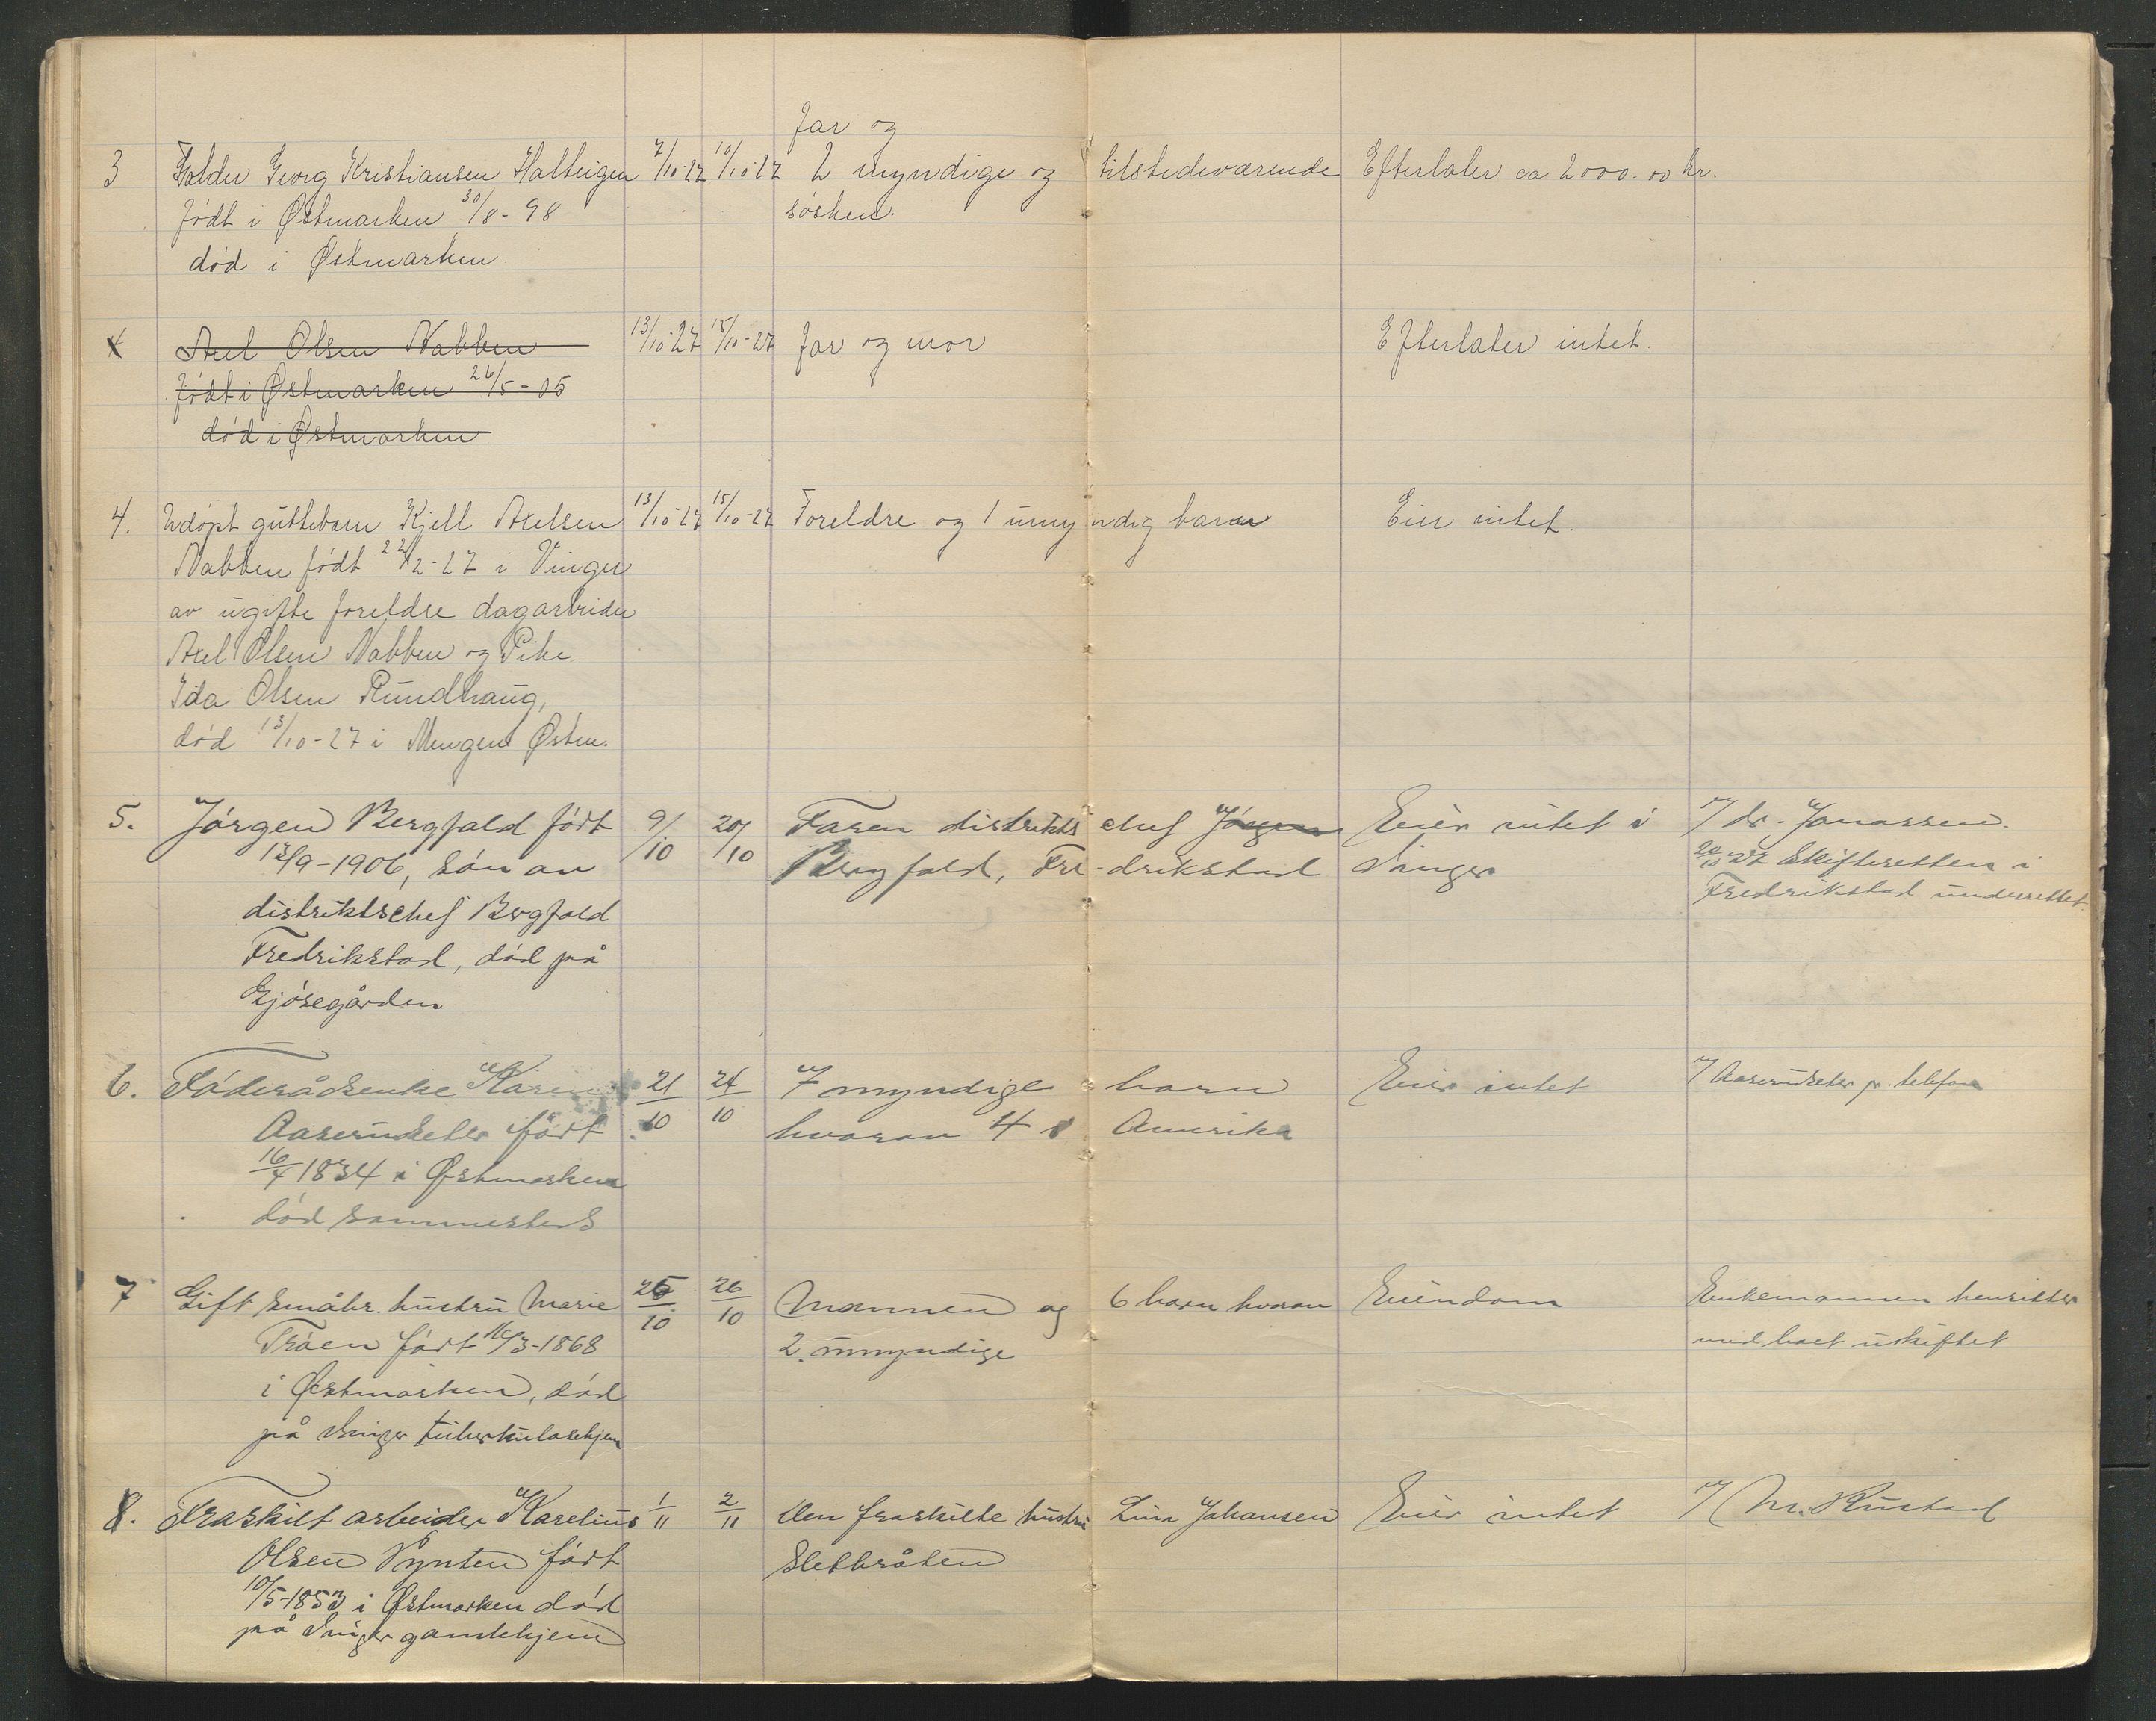 Far og
3 Halder Georg Kristiansen Halteigen 7/10-27 10/10-27 2 myndige og tilstedeværende Efterlater ca 2000.00 kr.
født i Østmarken 30/8-98 søsken.
død i Østmarken
4 Axel Olsen Nabben 13/10-27 15/10-27 Far og mor Efterlater intet.
født i Østmarken 26/5-05
død i Østmarken
4. Udøpt guttebarn Kjell Axelsen 13/10-27 15/10-27 Foreldre og 1 umyndig barn Eier intet.
Nabben født 22/2-27 i Vinger
av ugifte foreldre dagarbeider
Axel Olsen Nabben og Pike
Ida Olsen Rundhaug,
død 13/10-27 i Mengen Østm.
5. Jørgen Bergfald født 9/10 20/10 Faren distriktschef Jørgen Eier intet i 7 dr. Jonassen.
12/9-1906, søn av Bergfald, Fredrikstad Vinger 20/10-27 Skifteretten i
distriktschef Bergfald Fredrikstad underrettet
Fredrikstad, død på
Gjøsegården
6. Føderådsenke Karen 21/10 24/10 7 myndige barn Eier intet 7 Aaserudseter pr. telefon
Aaserudseter født hvorav 4 i Amerika
16/4 1834 i Østmarken
død sammesteds
7 Gift småbr. hustru Marie 25/10 26/10 Mannen og 6 barn hvorav Eiendom Enkemannen henvister
Trøen født 16/3-1868 2 umyndige med boet uskiftet
i Østmarken, død
på Vinger tuberkulosehjem
8. Fraskilt arbeider Karelius 1/11 2/11 Den fraskilte hustru Lina Johansen Eier intet 7 M. Rustad
Olsen Pynten født Sletbråten
10/5-1853 i Østmarken død
på Vinger gamlehjem